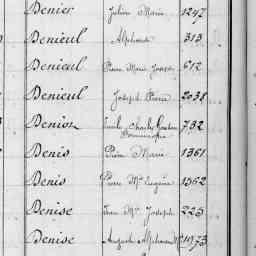 Denier Julien Marie 1247
Denieul Alphonse 313
Denieul Pierre Marie Joseph 612
Denieul Joseph Pierre 2038
Denion Emile Charles 732
Denis Pierre Marie 1361
Denis Pierre Mie Eugène 1562
Denise Jean Mie Joseph 225
Denise Auguste Alphonse 1173